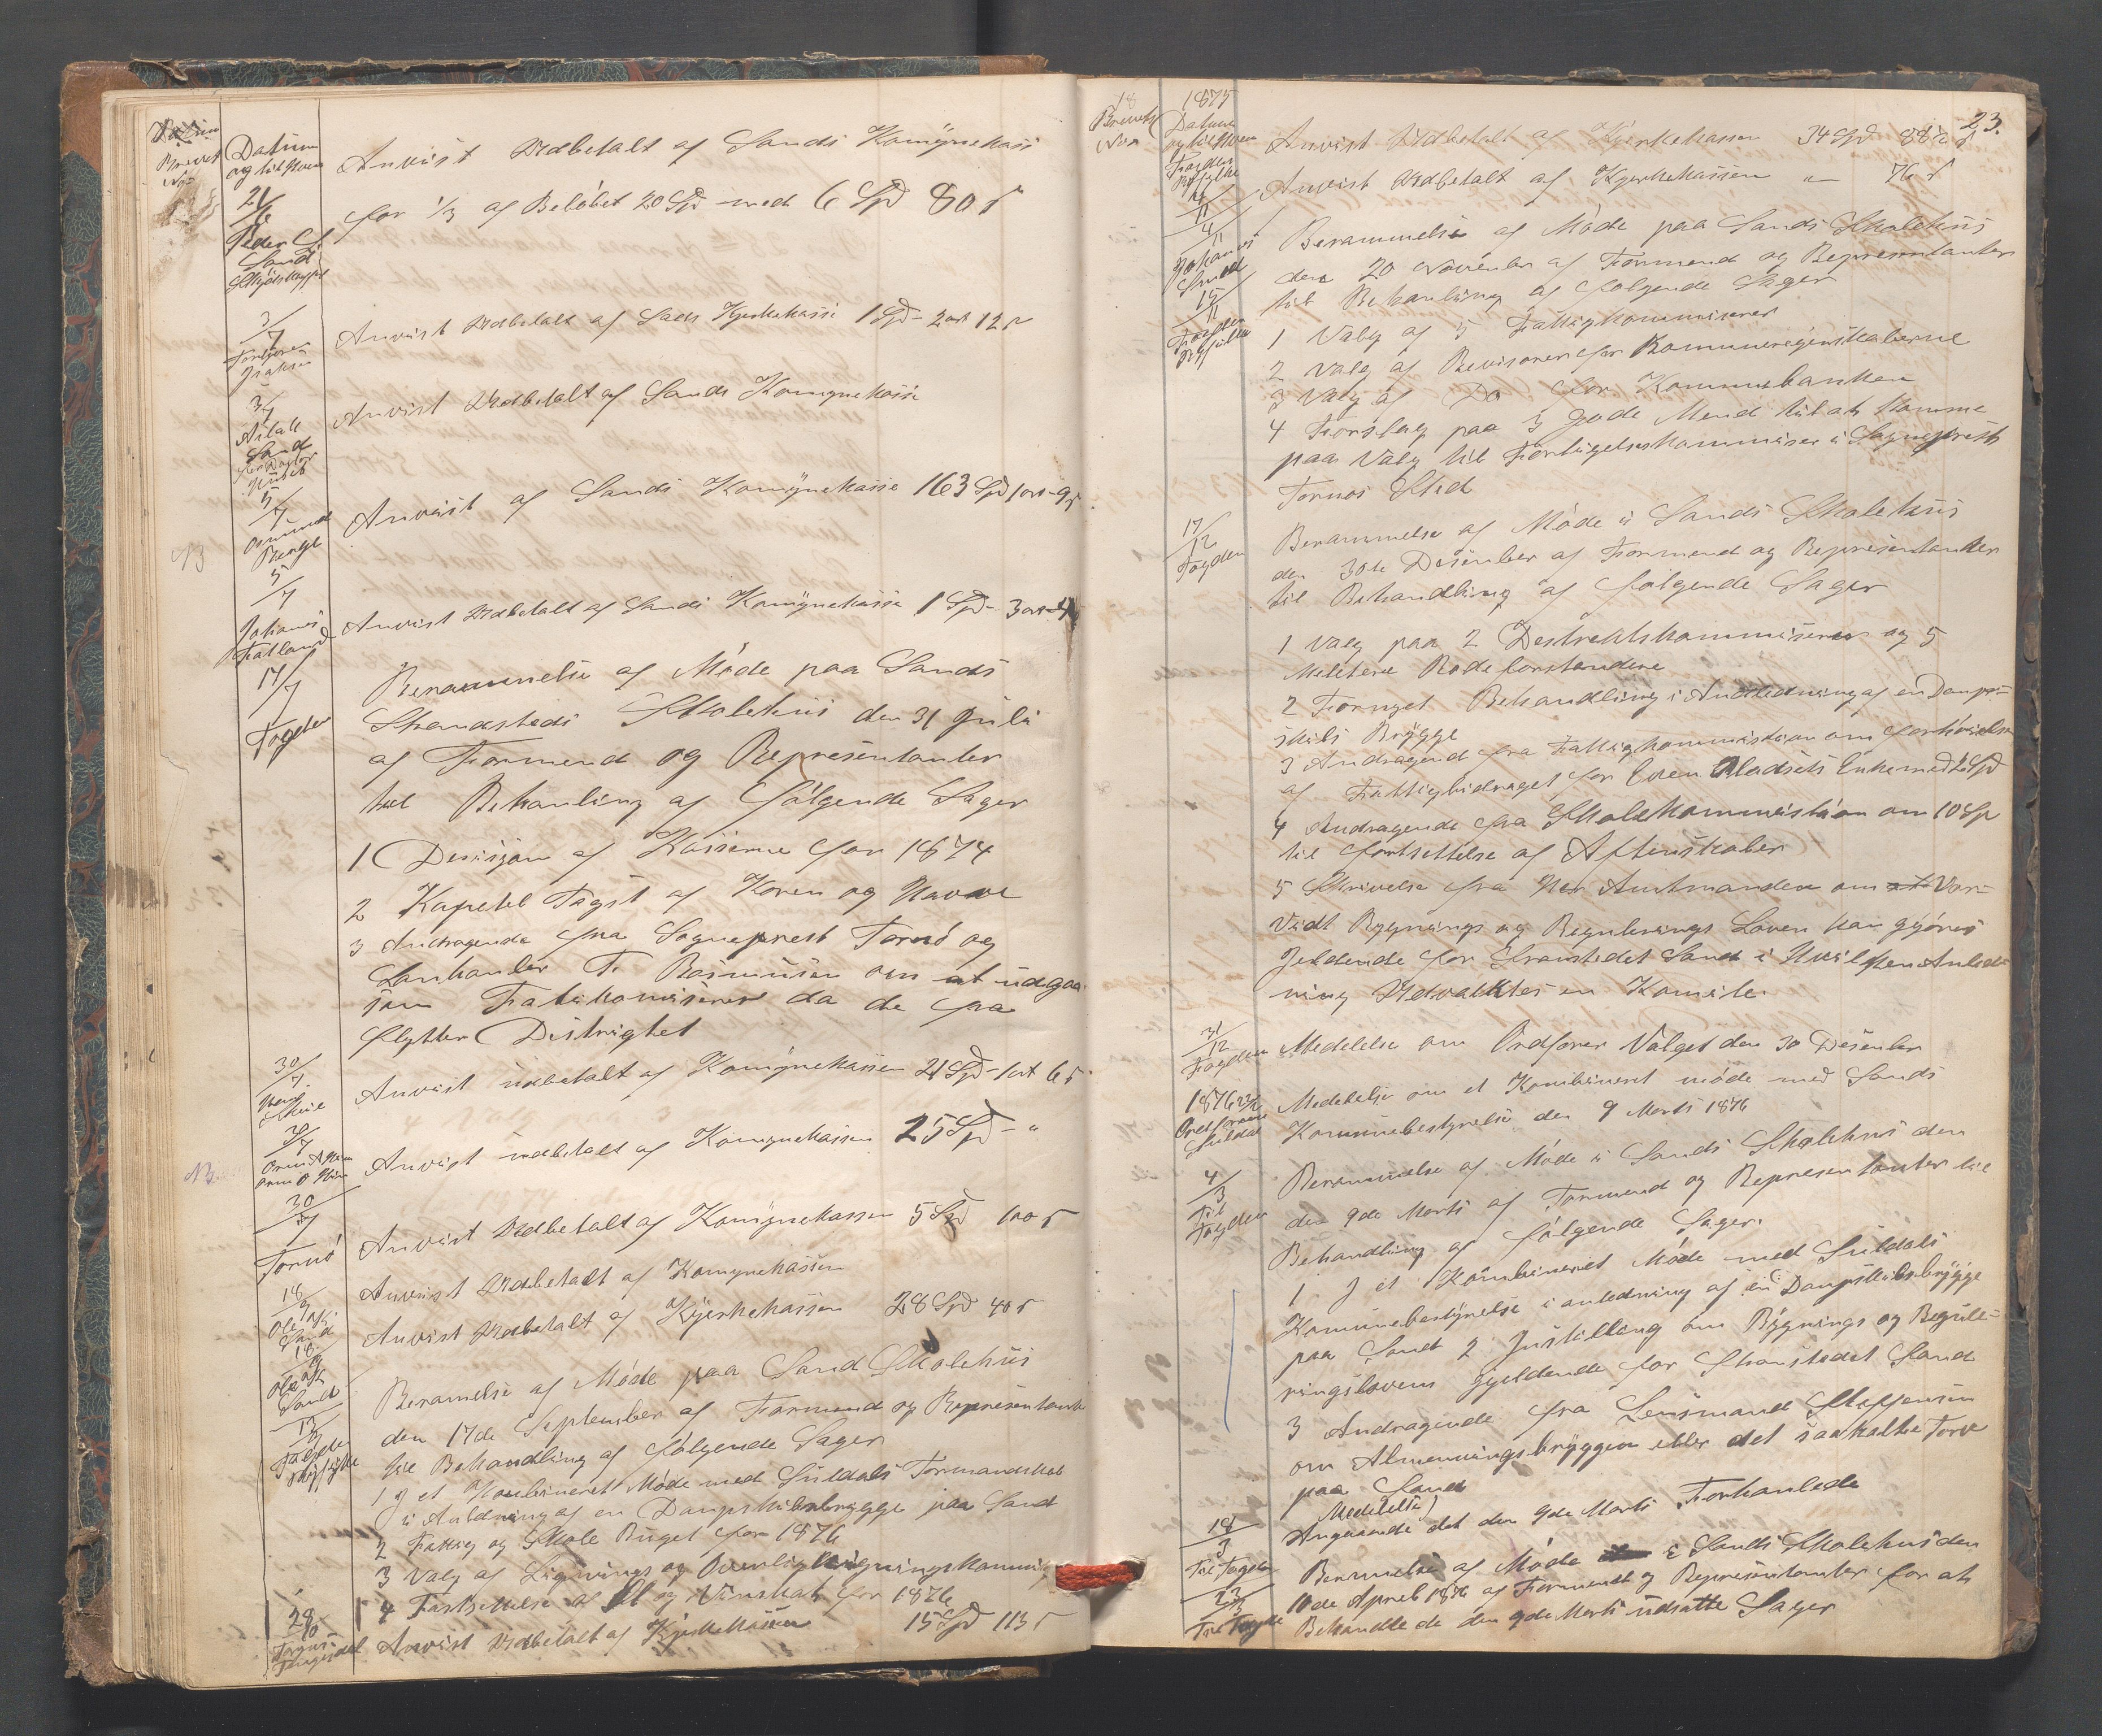 Brevets
No
Datum
og til Hvem
21/6
Peder
Sand
Anvist Udbetalt af Sands Komynekasse
for 1/3 af Beløbet 20 Spd med 6 Spd 80 s
3/7
Anvist Udbetalt af Sads Kjerkekasse 1 Spd - 2 ort 12 s
3/7
Sand
Anvist Udbetalt af Sands Komynekasse
5/7
Osmund
Berge
Anvist af Sands Komynekasse 163 Spd 1 ort - 9 s
NB
5/7
Johanes
Fatland
Anvist Udbetalt af Sands Komynekasse 1 Spd - 3 ort
17/7
Fogden
Berammelse af Møde paa Sands
Strandsteds Skolehus den 31 Juli
af Formend og Representanter
til Behanling af følgende Sager
1 Desisjon af Kasserne for 1874
2 Kapetel Tagst af Koren og Havre
3 Andragende fra Sogneprest Tornø og
Lanhanler T. Rasmusen om at udgaa
som Fatikomiserer da de fra
flytter Distrigtet
30/7
Anvist udbetalt af Komynekassen 21 Spd - 1 ort 6 s
30/7
NB
Anvist udbetalt af Komynekassen 25 Spd - "
30/7
Tornø
Anvist Udbetalt af Komynekassen 5 Spd 100 s
18/9
Ole
Sand
Anvist Udbetalt af Komynekassen
18/9
Ola
Sand
Anvist Udbetalt af Kjerkekassen 28 Spd 40 s
13/9
Fogden
Beramelse af Møde paa Sand Skolehus
den 17de September af Formend og Representanter
til Behandling af følgende Sager
1 J et Kombineret Møde med Suldals Formandskab
i Anledning af en Dampskibsbrygge paa Sand
2 Fattig og Skole Buget for 1876
3 Valg af Lignings og Overligningskommis
4 Fastsettelse af Øl og Vinskat for 1876
28/10
Anvist Udbetalt af Kjerkekassen 15 Spd 113 s
23.
18
Brevets
No
1875
Datum
og til Hvem
Fogden
Ryfylke
Anvist Udbetalt af Kjerkekassen 34 Spd 88 1/2 s
4/11
Johanes
Smed
Anvist Udbetalt af Kjerkekassen " - 76 s
15/11
Fogden
Ryfylke
Berammelse af Møde paa Sands Skolehus
den 20 November af Formend og Representanter
til Behanling af følgende Sager
1 Valg af 5 Fattigkommiserer
2 Valg af Revisorer for Kommuneregenskaberne
3 Valg af Do for Kommunebanken
4 Forslag paa 3 gode Mend til at komme
paa Valg til Forligelseskommiser i Sogneprest
Tornøs Sted
17/12
Fogden
Berammelse af Møde i Sands Skolehus
den 30te Desember af Formend og Representanter
til Behandling af følgende Sager
1 Valg paa 2 Destrektskommiserer og 5
Militere Rodeforstandere
2 Fornyet Behandling i Andledning af en Damp-
skibs Brygge
3 Andragend fra Fattigkommistion om forhøielse
af Fattigbidraget for Even Pladsets Enke med 2 Spd
4 Andragende fra Skolekommistion om 10 Sp
til fortsettelse af Aftenskoler
5 Skrivelse fra Her Amtmanden om at Vor-
vidt Bygnings og Regulerings Loven kan gjøres
Jeldende for Stranstedet Sand i Hvilken Anled-
ning Udvalktes en Komite.
31/12
Fogden
Medelelse om Ordfører Valget den 30 Desember
1876 22/2
Ordføreren
Suldal
Medelelse om et Kombineret møde med Sands
Kommunebestyrelse den 9 Marts 1876
4/3
Til
Fogden
Berammelse af Møde i Sands Skolehus den
den 9de Marts af Formend og Representanter til
Behandling af følgende Sager.
1 J et Kombineret Møde med Suldals
Kommunebestyrelse i anledning af en Dampskibsbrygge
paa Sand 2 Jnstilling om Bygnings og Regule-
ringsloven gjeldende for Stranstedet Sand
3 Andragende fra Lensmand Steffensen
om Almenningsbryggen eller det saakalte Torv
paa Sand
18/3
Til Fogden
Medelelse
Angaaende det den 9de Marts Forhanlede
23/3
Til Fogde
Berammelse af Møde i Sands Skolehus den
10de Apreil 1876 af Formend og Representanter for at
Behandle de den 9de Marts udsatte Sager